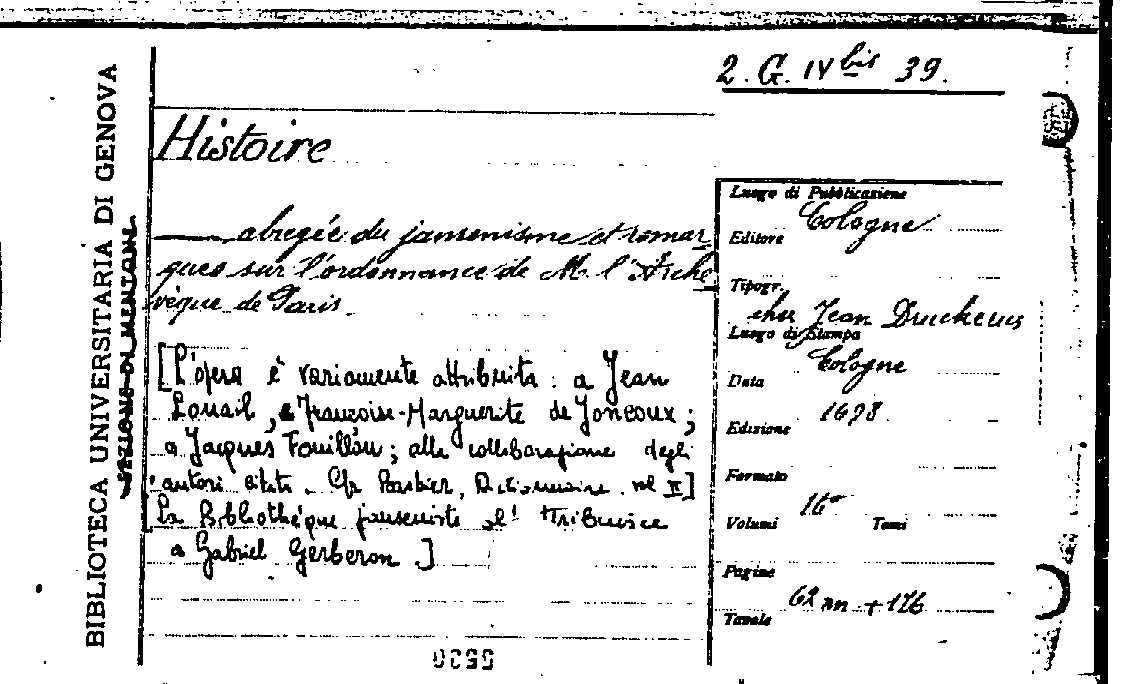 2. G. IV bis 39.
BIBLIOTECA UNIVERSITARIA DI GENOVA
SEZIONE DI MENTONE
Histoire
abregée du jansenisme et remar
ques sur l'ordonnance de M. l'Arche
vèque de Paris.
[L'opera è variamente attribuita: a Jean
Louail, a Françoise-Marguerite de Joncoux;
a Jacques Fouillou; alla collaborazione degli
autori citati. Cfr Barbier, Dictionnaire. vol II]
[La Bibliothèque janseniste l'attribuisce
a Gabriel Gerberon]
Luogo di Pubblicazione
Cologne
Editore
Tipogr.
chez Jean Druckerus
Luogo di Stampa
Cologne
Data
1698
Edizione
Formato
16°
Volumi Tomi
Pagine
62 nn + 176
Tavole